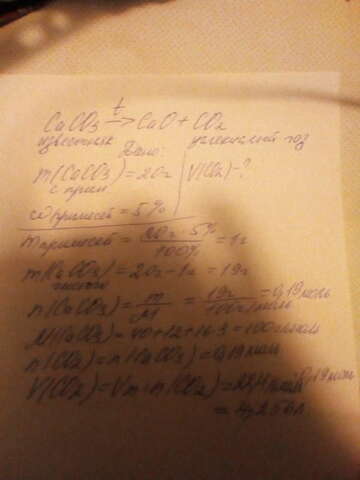 CaCO3 →t CaO + CO2
известняк углекислый газ
Дано:
m(CaCO3) = 20г V(CO2) - ?
с прим
ω примесей = 5%
m примесей = 20г · 5% / 100% = 1г
m(CaCO3) = 20г - 1г = 19г
чистого
n(CaCO3) = m / M = 19г / 100г/моль = 0,19моль
M(CaCO3) = 40+12+16·3 = 100г/моль
n(CO2) = n(CaCO3) = 0,19моль
V(CO2) = Vm · n(CO2) = 22,4л/моль · 0,19моль
= 4,256л